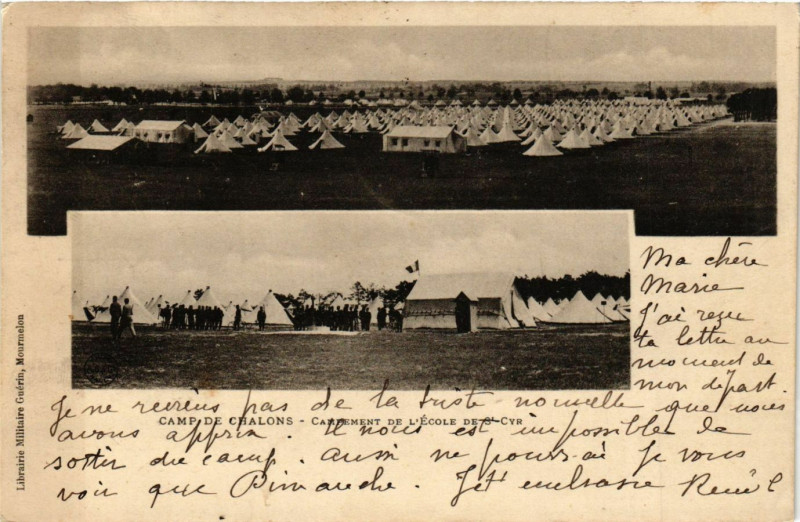 Ma chère
Marie
J'ai reçu
ta lettre au
moment de
mon départ.
Je ne reviens pas de la triste nouvelle que nous
CAMP DE CHALONS - CAMPEMENT DE L'ÉCOLE DE St-CYR
avons appris. Il nous est impossible de
sortir du camp. Aussi ne pourrai Je vous
voir que Dimanche. Je t'embrasse René
Librairie Militaire Guérin, Mourmelon